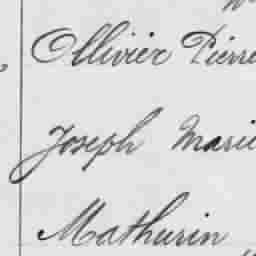 Ollivier Pierre
Joseph Marie
Mathurin